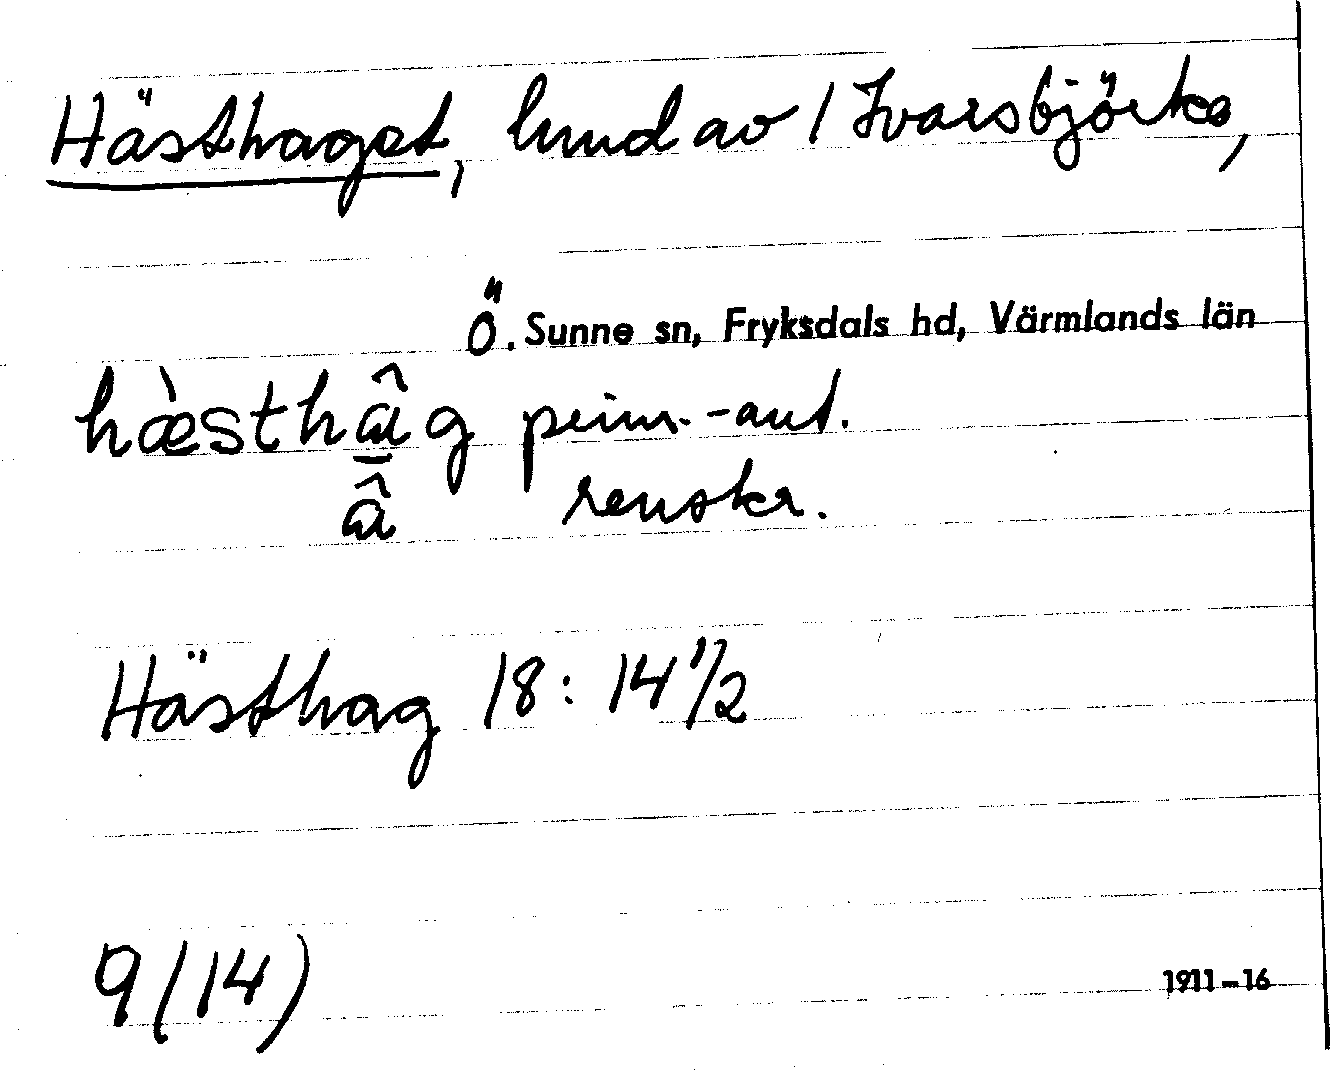 Hästhaget, hmd av 1 Ivarsbjörke,
Ö. Sunne sn, Fryksdals hd, Värmlands län
hæ̀sthâg prim.-ant.
â renskr.
Hästhag 18:14 1/2
9(14)
1911–16